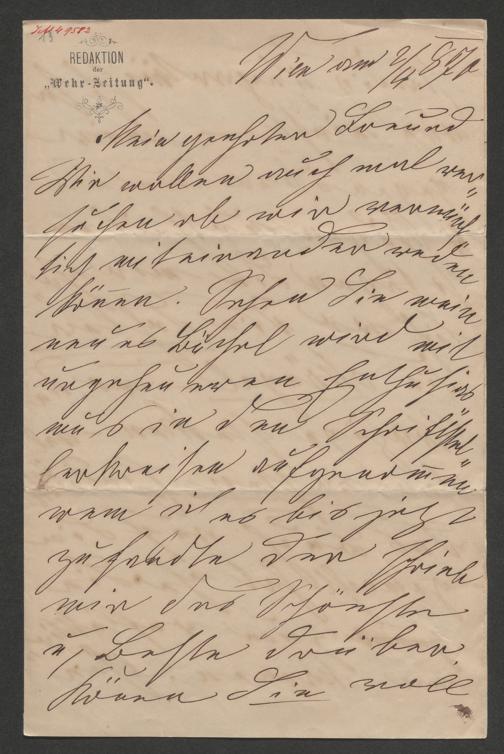 REDAKTION
der
„Wehr-Zeitung“.
Wien am 2/4 8
Mein geehrter Freund
Wir wollen auch mal ver„
suchen ob wir vernünf„
tig miteinander reden
können. Sehen Sie mein
neues Büchel wird mit
ungeheueren Enthusias
mus in den Schriftstel„
lerkreisen aufgenommen
wem ich es bis jetzt
zusandte der schrieb
mir das Schönste
u, Beste darüber.
Können Sie voll